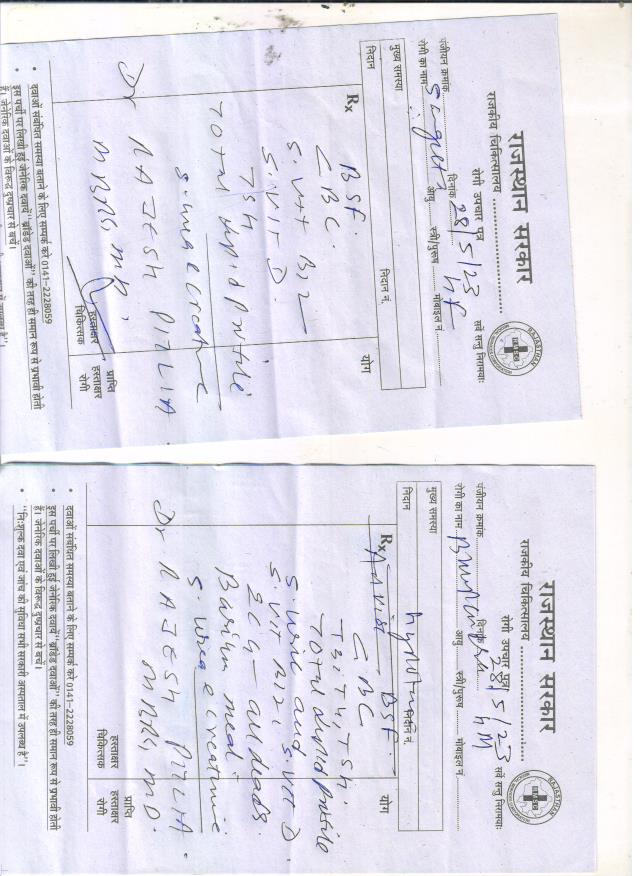 राजस्थान सरकार
राजकीय चिकित्सालय
रोगी उपचार पत्र
सर्वे सन्तु निरामयाः
RAJASTHAN
पंजीयन क्रमांक
दिनांक 28/5/23
रोगी का नाम
आयु
स्त्री/पुरूष
मोबाइल नं.
मुख्य समस्या
निदान
निदान नं.
Rx
योग
BSF.
CBC.
S. VIT B12
S. VIT D.
TSH
Total Lipid profile
S. urea creatine
Dr RAJESH PITLIA
MBBS, MD,
हस्ताक्षर
चिकित्सक
प्राप्ति
हस्ताक्षर
रोगी
दवाओं संबंधित समस्या बताने के लिए सम्पर्क करे 0141-2228059
इस पर्ची पर लिखी हुई जेनेरिक दवायें "ब्रांडेड दवाओं" की तरह ही समान रूप से प्रभावी होती
है। जेनेरिक दवाओं के विरूद्ध दुष्प्रचार से बचें।
राजस्थान सरकार
राजकीय चिकित्सालय
रोगी उपचार पत्र
सर्वे सन्तु निरामयाः
RAJASTHAN
पंजीयन क्रमांक
दिनांक 28/5/23
रोगी का नाम
आयु
स्त्री/पुरूष
मोबाइल नं.
मुख्य समस्या
निदान
निदान नं.
Rx
योग
Advise - BSF
CBC
T3, T4, TSH.
Total Lipid profile
S. uric acid
S. VIT B12, S. VIT D
ECG - all leads.
Barium meal
S. urea creatinine
Dr RAJESH PITLIA.
MBBS, MD.
हस्ताक्षर
चिकित्सक
प्राप्ति
हस्ताक्षर
रोगी
दवाओं संबंधित समस्या बताने के लिए सम्पर्क करे 0141-2228059
इस पर्ची पर लिखी हुई जेनेरिक दवायें "ब्रांडेड दवाओं" की तरह ही समान रूप से प्रभावी होती
है। जेनेरिक दवाओं के विरूद्ध दुष्प्रचार से बचें।
"निःशुल्क दवा एवं जांच की सुविधा सभी सरकारी अस्पताल में उपलब्ध है"।